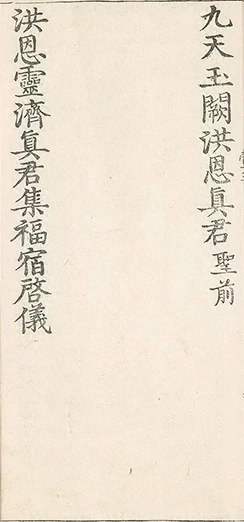 九天玉闕洪恩真君聖前
洪恩靈濟真君集福宿啓儀